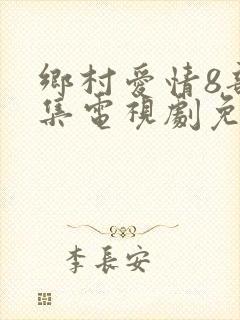 鄉村愛情8部
集電視劇免
李長安